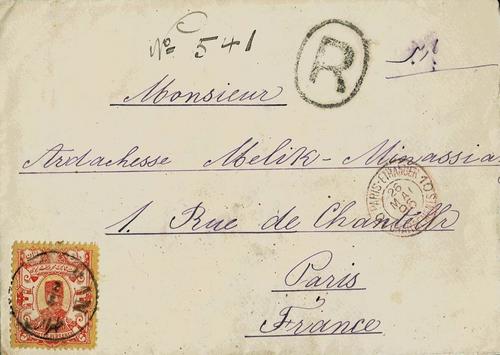 No 541
R
Monsieur
Ardachesse Melik-Minassia
1. Rue de Chantelle
Paris
France
PARIS-ETRANGER
26
MAI